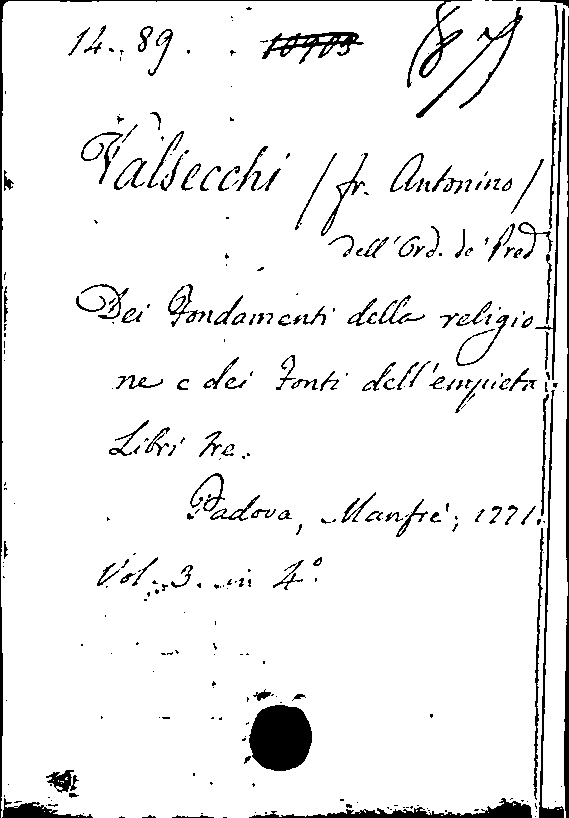 14. 89. 10903
Valsecchi / fr. Antonino /
dell'Ord. de' Pred
Dei Fondamenti della religio-
ne e dei Fonti dell'empieta
Libri tre.
Padova, Manfrè, 1771.
Vol. 3. in 4°.